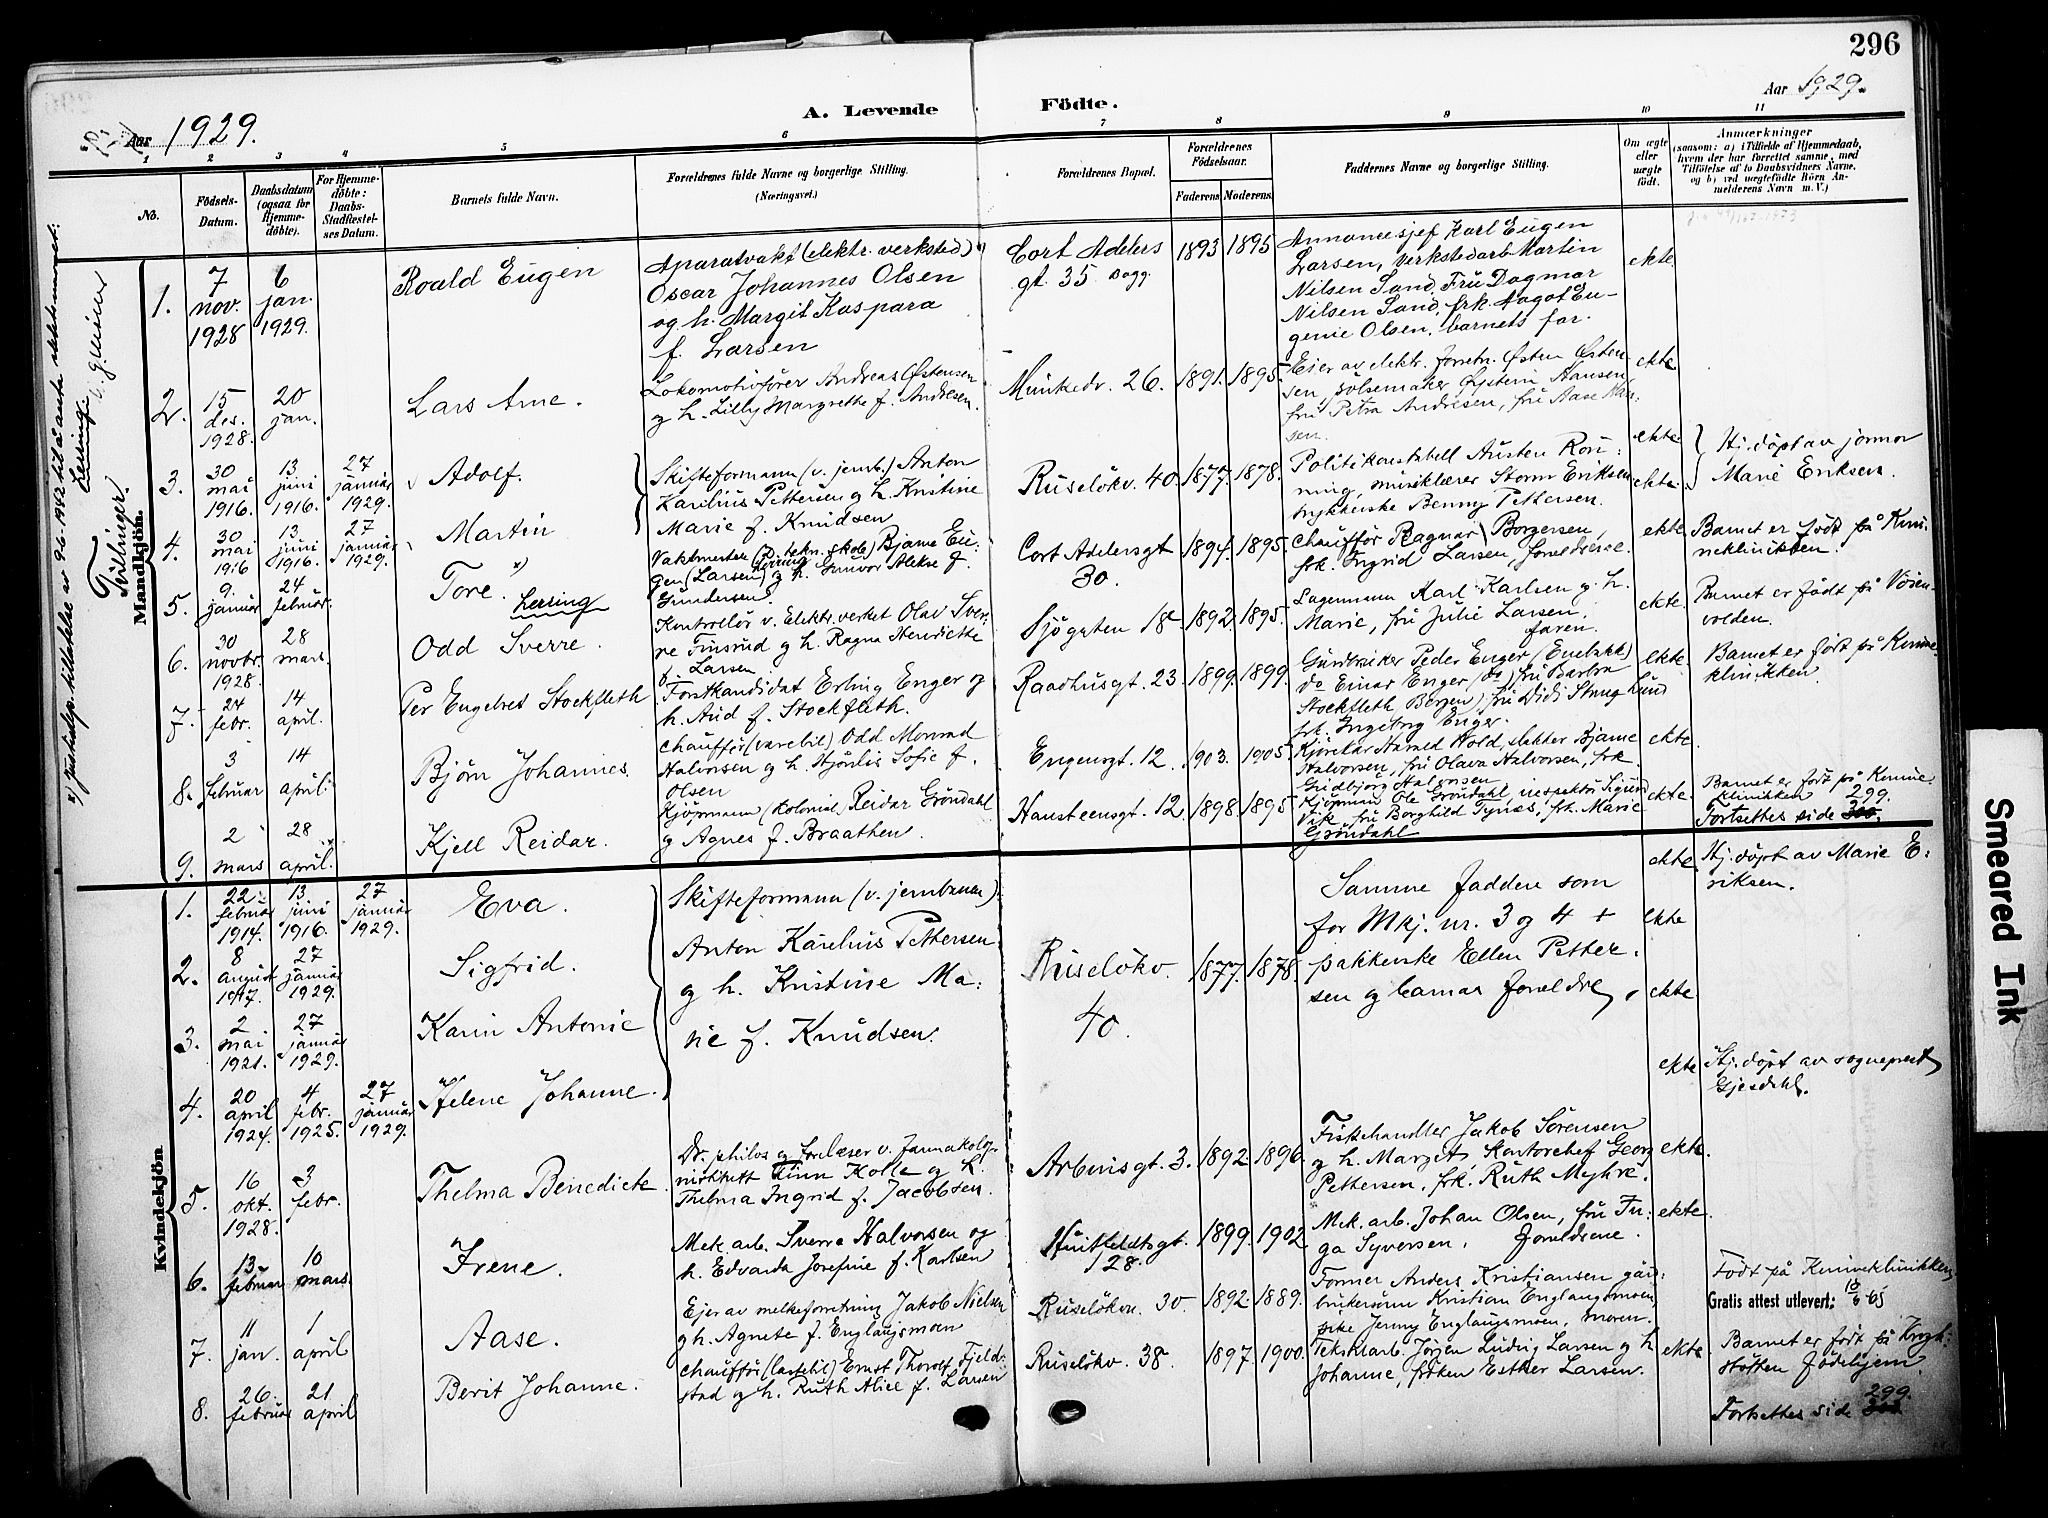 296
Aar 1929.
Aar 1929.
A. Levende Födte.
1 2 3 4 5 6 7 8 9 10 11
No.
Födsels-
Datum.
Daabsdatum
(ogsaa for
Hjemme-
döbte).
For Hjemme-
döbte:
Daabs-
Stadfæstel-
ses Datum.
Barnets fulde Navn.
Forældrenes fulde Navne og borgerlige Stilling.
(Næringsvei.)
Forældrenes Bopæl.
Forældrenes
Födselsaar.
Faderens. Moderens.
Faddernes Navne og borgerlige Stilling.
Om ægte
eller
uægte
födt.
Anmærkninger
(saasom: a) i Tilfælde af Hjemmedaab,
hvem der har forrettet samme, med
Tilföielse af to Daabsvidners Navne,
og b) ved uægtefödte Börn An-
melderens Navn m. V.)
Mandkjön.
Tvillinger.
x) Justisdep. tillatelse av 9-6-1942 til å anta slektsnavnet:
Lerring
1.
7
nov.
1928
6
jan.
1929.
Roald Eugen
Aparatvakt (elektr. verksted)
Oscar Johannes Olsen
og h. Margit Kaspara
f. Larsen
Cort Adelers
gt. 35 Bagg.
1893 1895
Annoncesjef Karl Eugen
Larsen, verkstedarb. Martin
Nilsen Sand, Fru Dagmar
Nilsen Sand, frk. Aagot Eu-
genie Olsen, barnets far.
ekte.
2.
15
des.
1928.
20
jan.
Lars Arne.
Lokomotivfører Andreas Østensen
og h. Lilly Margrethe f. Andresen.
Munkedv. 26.
1891. 1895.
Eier av elektr. forretn. Østen Østen-
sen, pølsemaker Øystein Hansen
fru Petra Andresen, fru Aase Han-
sen.
ekte
3.
30
mai
1916.
13
juni
1916.
27
januar
1929.
Adolf.
Skifteformann (v. jernb.) Anton
Karelius Pettersen og h. Kristine
Marie f. Knudsen
Ruseløkv. 40.
1877. 1878.
Politikonstabell Austen Rön-
ning, musiklærer Storm Eriksen
trykkerske Benny Pettersen.
ekte
Hj. døpt av jormor
Marie Eriksen.
4.
30
mai
1916
13
juni
1916.
27
januar
1929.
Martin
ekte
5.
9.
januar
24
februar.
Tore. x)
Lerring
Vaktmester (v. tekn. skole) Bjarne Eu-
gen (Larsen) Lerring og h. Gunvor Alekse f.
Gundersen.
Cort Adelersgt
30.
1894. 1895.
Chauffør Ragnar Borgersen,
frk. Ingrid Larsen, foreldrene.
ekte
Barnet er født på Kvin-
neklinikken.
6.
30
novbr.
1928.
28
mars.
Odd Sverre.
Kontrollør v. Elektr. verket Olav Sver-
re Finsrud og h. Ragna Henriette
f. Larsen
Sjøgaten 18
1892. 1895.
Lagermann Karl Karlsen og h.
Marie, fru Julie Larsen,
faren.
ekte.
Barnet er født på Vøien-
volden.
7.
24
febr.
14
april.
Per Engebret Stockfleth
Forstkandidat Erling Enger og
h. Aud f. Stockfleth.
Raadhusgt. 23.
1899. 1899.
Gårdbruker Peder Enger (Enebakk)
do Einar Enger (do) fru Barbra
Stockfleth (Bergen) fru Didi Stang Lund
frk. Ingeborg Enger.
ekte
Barnet er født på Kvinne-
klinikken.
8.
3
februar
14
april.
Bjørn Johannes.
Chauffør (varebil) Odd Monrad
Halvorsen og h. Hjørdis Sofie f.
Olsen
Engensgt. 12.
1903. 1905
Kjørekar Harald Wold, slakter Bjarne
Halvorsen, fru Olava Halvorsen, frk.
Gudbjørg Halvorsen
ekte.
9.
2
mars
28
april.
Kjell Reidar.
Kjøpmann (kolonial) Reidar Grøndahl
og Agnes f. Braathen.
Hansteensgt. 12.
1898. 1895
Kjøpmann Ole Grøndahl, inspektør Sigurd
Vik, fru Borghild Tynæs, frk. Marie
Grøndahl
ekte.
Barnet er født på Kvinne-
klinikken
299.
Fortsettes side
Kvindekjön
1.
22
februar
1914.
13
juni
1916.
27
januar
1929.
Eva.
Skifteformann (v. jernbanen).
Anton Karelius Pettersen
og h. Kristine Ma-
rie f. Knudsen.
Ruseløkv.
40.
1877. 1878.
Samme faddere som
for Mkj. nr. 3 og 4 +
pakkerske Ellen Petter-
sen og barnas foreldre.
ekte
Hj. døpt av Marie E-
riksen.
2.
8
august
1917.
27
januar
1929.
Sigfrid.
ekte
3.
2
mai
1921.
27
januar
1929.
Karin Antonie
ekte
4.
20
april
1924.
4
febr.
1925.
27
januar
1929.
Helene Johanne.
ekte
Hj. døpt av sogneprest
Gjesdahl.
5.
16
okt.
1928.
3
febr.
Thelma Benedicte.
Dr. philos og foreleser v. Farmakolog.
institutt Finn Kolle og h.
Thelma Ingrid f. Jacobsen.
Arbinsgt. 3.
1892. 1896.
Fiskehandler Jakob Sørensen
og h. Margit, Kontorchef Georg
Pettersen, frk. Ruth Myhre.
ekte.
6.
13
februar
10
mars.
Irene.
Mek. arb. Sverre Halvorsen og
h. Edvarda Josefine f. Karlsen
Huitfeldtsgt.
28.
1899. 1902
Mek. arb. Johan Olsen, fru In-
ga Syversen, foreldrene.
ekte
7.
11
jan.
1
april
Aase.
Ejer av melkeforretning Jakob Nielsen
og h. Agnete f. Englaugsmoen
Ruseløkvn. 30.
1892. 1889.
Former Anders Kristiansen gård-
brukersønn Kristian Englaugsmoen,
pike Jenny Englaugsmoen, moren.
Født på Kvinneklinikken
Gratis attest utlevert: 18/6-65
8.
26.
februar
21
april
Berit Johanne.
Chauffør (lastebil) Ernst Thorolf Fjeld-
stad og h. Ruth Alice f. Larsen
Ruseløkv. 38.
1897. 1900.
Tekstilarb. Jørgen Ludvig Larsen og h
Johanne, frøken Esther Larsen.
ekte.
Barnet er født på Krogh-
støtten fødehjem
299.
Fortsettes side
Smeared Ink